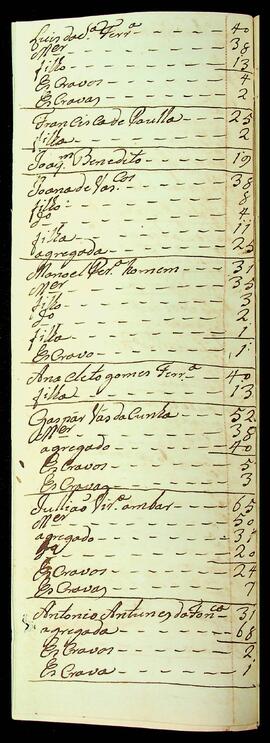 Luis da Sª Ferrª - - - - 40
Mer - - - - 38
fillo - - - - 13
Escravos - - - - 4
Escravas - - - - 2
Francisca de Paulla - - - 25
filla - - - - 2
Joaqm Benedito - - - 19
Joana de Vascos - - - 38
fillo - - - - 8
Do - - - - 4
filla - - - - 11
agregada - - - - 25
Manoel Perª homem - - - 31
Mer - - - - 35
fillo - - - - 3
Do - - - - 2
filla - - - - 1
Escravo - - - - 1
Ana Cleto gomes Ferrª - - 40
filla - - - - 13
Gaspar Vas da Cunha - - - 52
Mer - - - - 38
agregado - - - - 40
Escravos - - - - 5
Escravas - - - - 3
Jullião Virª ambar - - - 65
Mer - - - - 50
agregado - - - - 31
- - - - 20
Escravos - - - - 24
Escravas - - - - 7
Antonio Antunes da Fonca - 31
agregada - - - - 68
Escravos - - - - 2
Escrava - - - - 1